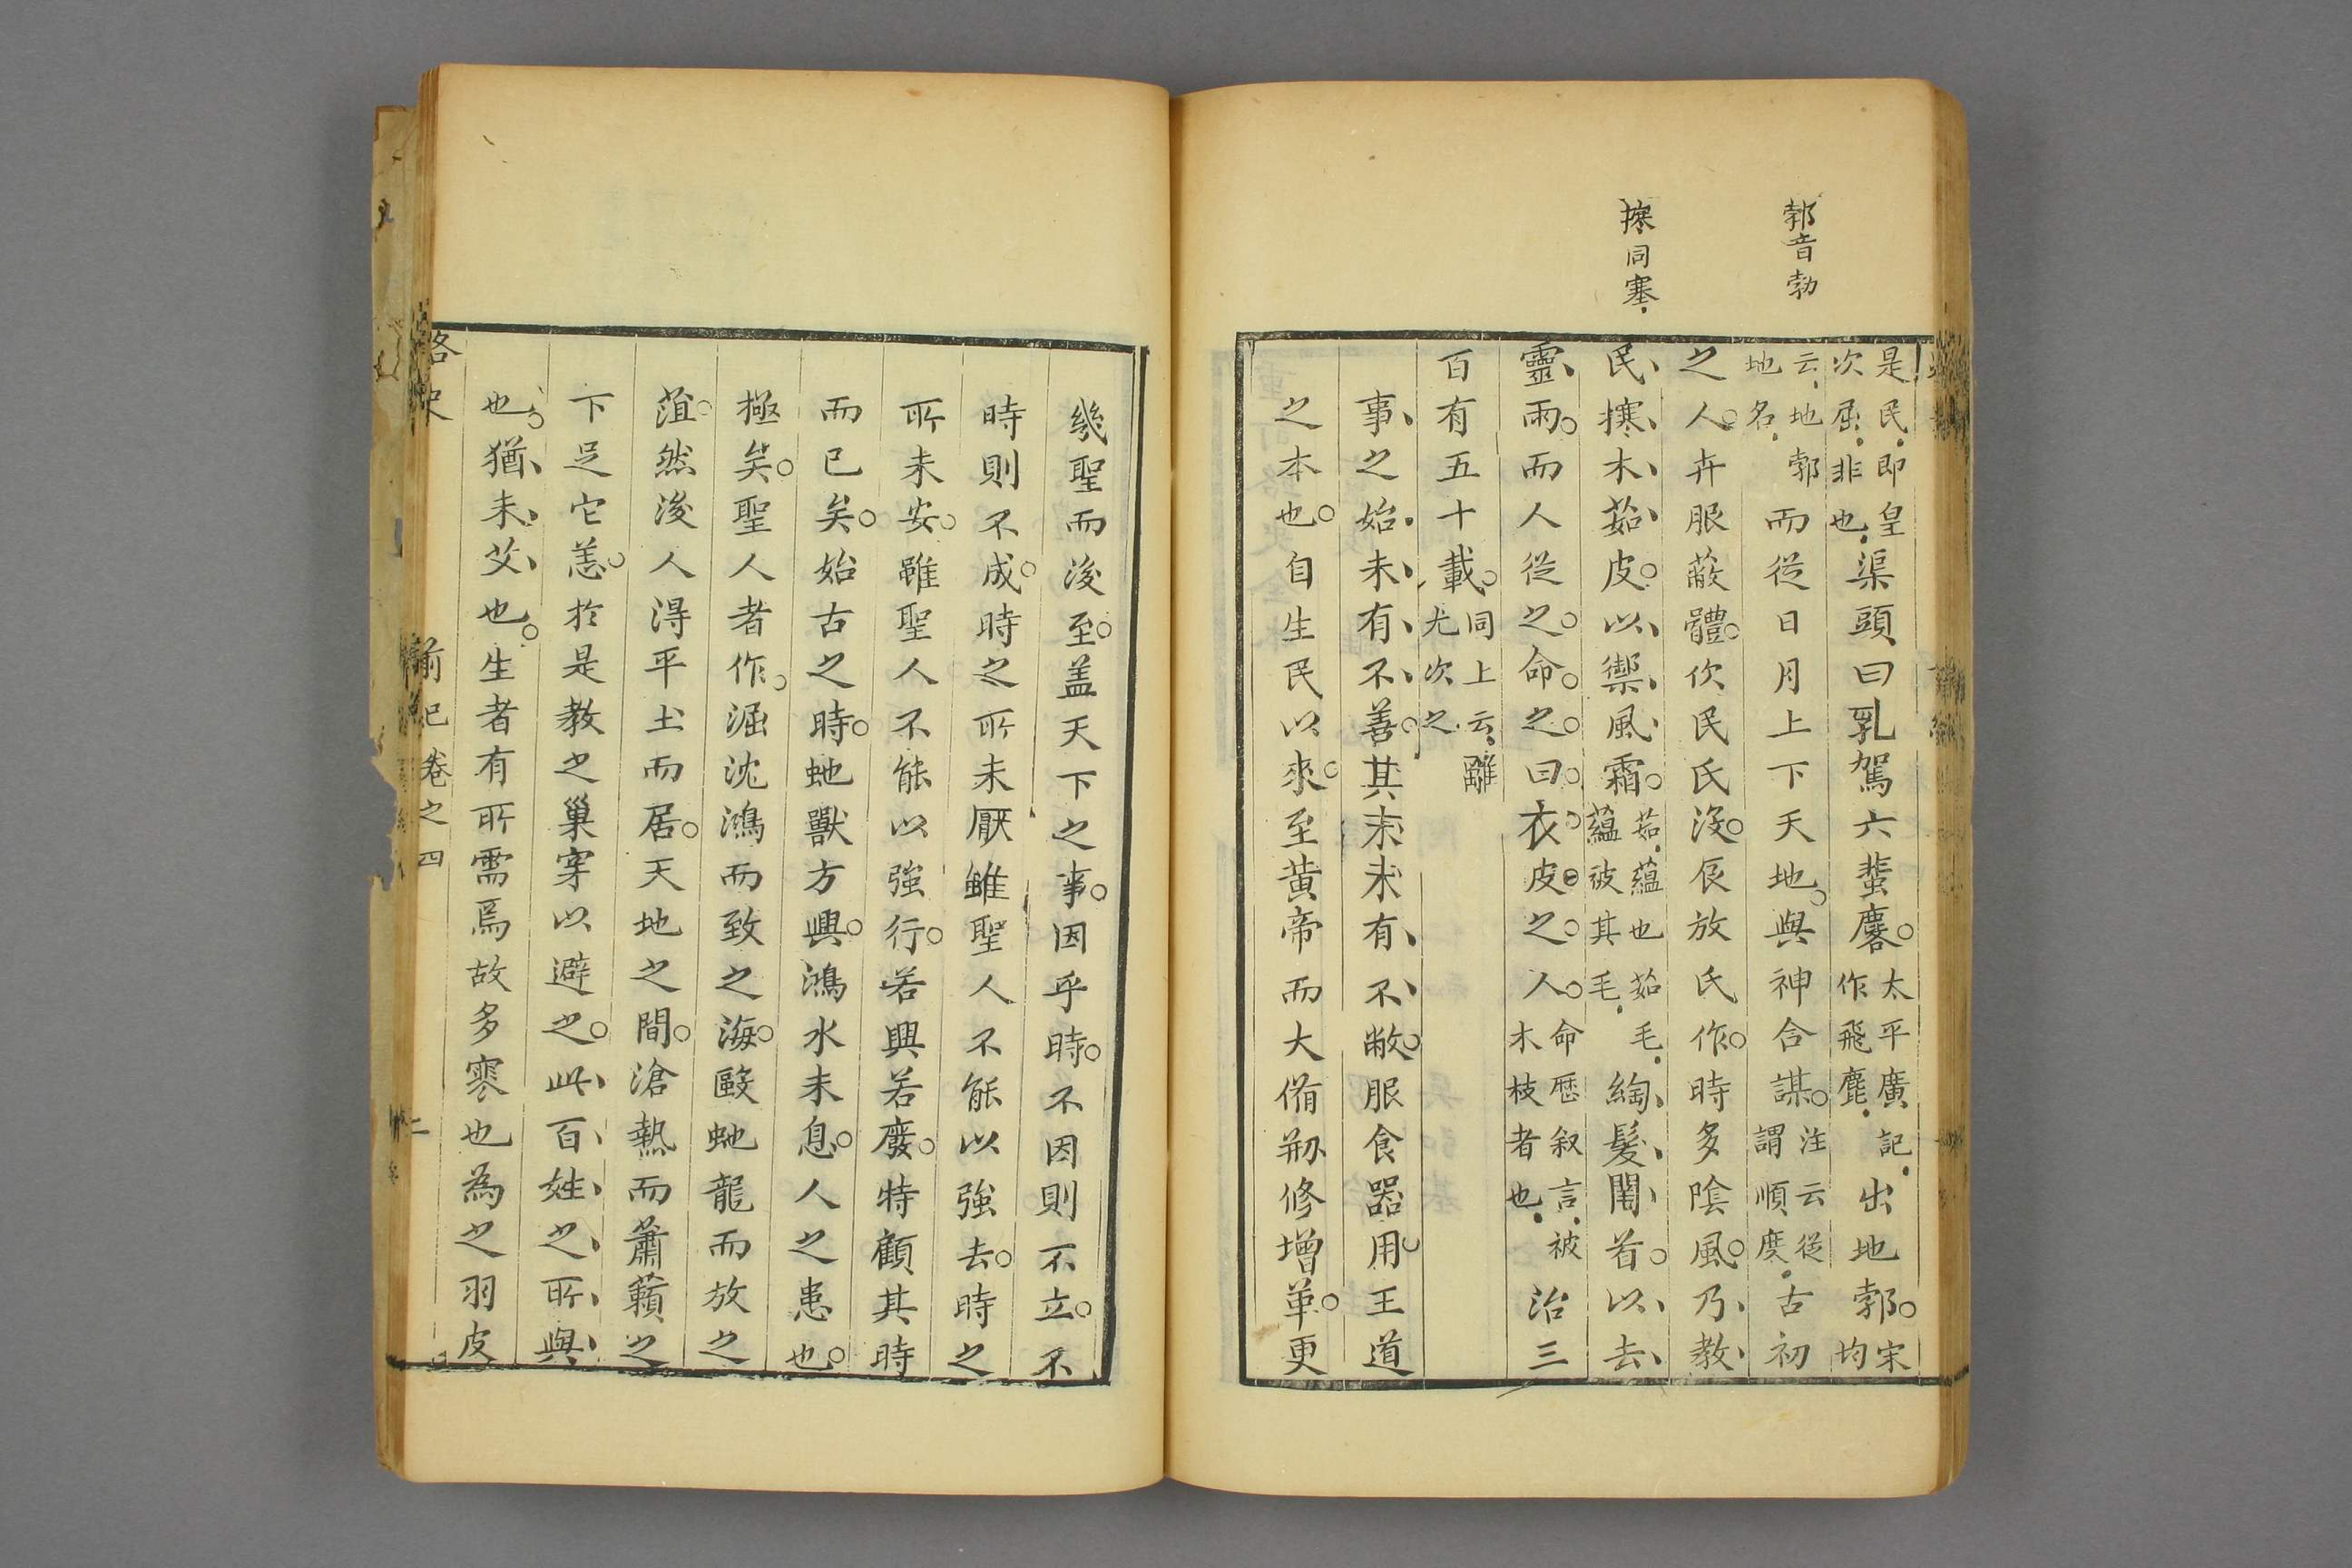 郣音勃
㩙同塞
是民即皇次屈非也渠頭曰乳駕六蜚麐太平廣記作飛麀出地郣宋均
云地郣地名而從日月上下天地與神合謀注云從謂順度古初
之人卉服蔽體佽民氏沒辰放氏作時多陰風乃教
民㩙木茹皮以禦風霜茹蘊也茹毛蘊被其毛綯髮閐首以去
靈雨而人從之命之曰衣皮之人命歷叙言被木枝者也治三
百有五十載同上云離光次之
事之始未有不善其末未有不敝服食器用王道
之本也自生民以來至黃帝而大備剏修增革更
幾聖而後至盖天下之事因乎時不因則不立不
時則不成時之所未厭雖聖人不能以強去時之
所未安雖聖人不能以強行若興若廢特顧其時
而已矣始古之時虵獸方興鴻水未息人之患也
極矣聖人者作漚沈鴻而致之海毆虵龍而放之
菹然後人得平土而居天地之間滄熱而蕭䕘之
下足它恙於是教之巢穽以避之此百姓之所與
也猶未艾也生者有所需焉故多寒也為之羽皮
路史 前紀卷之四 二